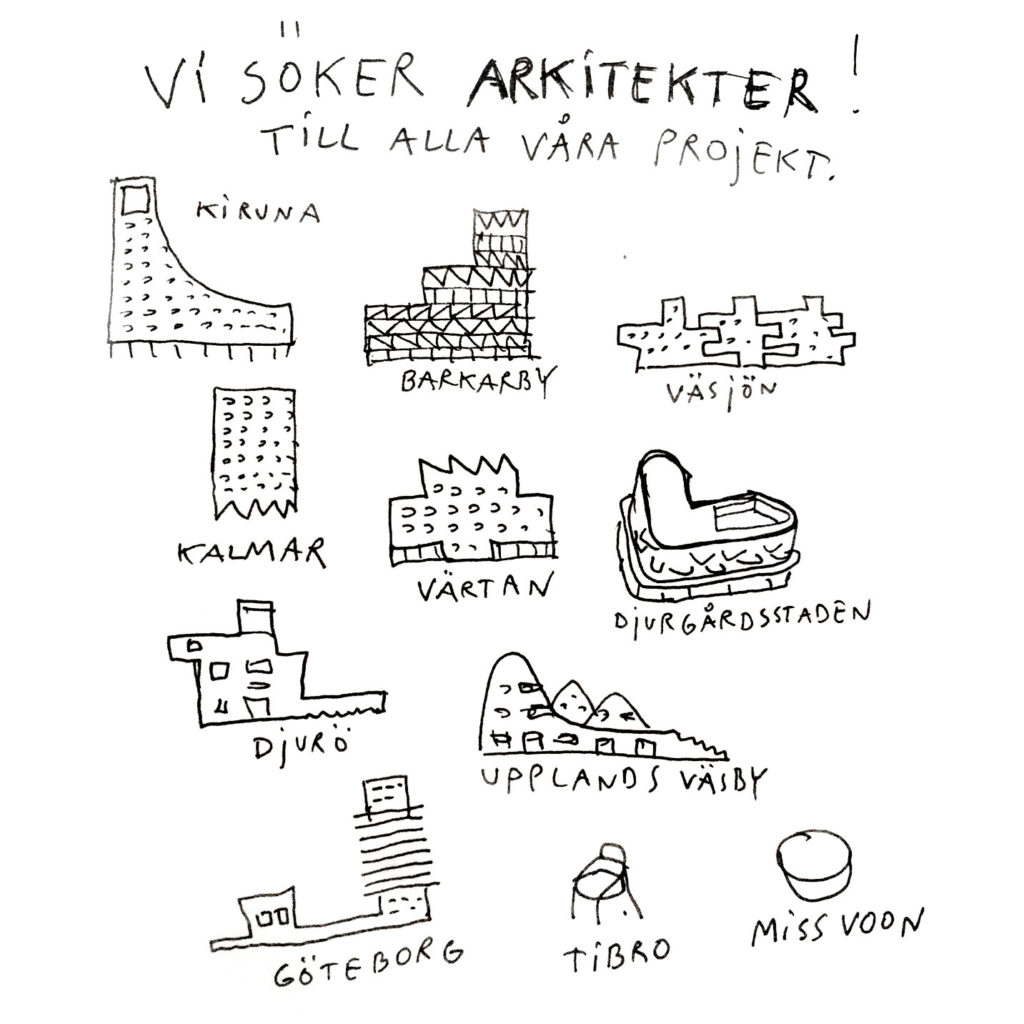 Vi SÖKER ARKiTEKTER!
TiLL ALLA VÅRA PROjEKT.
KiRUNA
BARKARBY
VÄSjÖN
KALMAR
VÄRTAN
DjURGÅRDSSTADEN
DjURÖ
UPPLANDS VÄSBY
GÖTEBORG
TiBRO
MiSS VOON